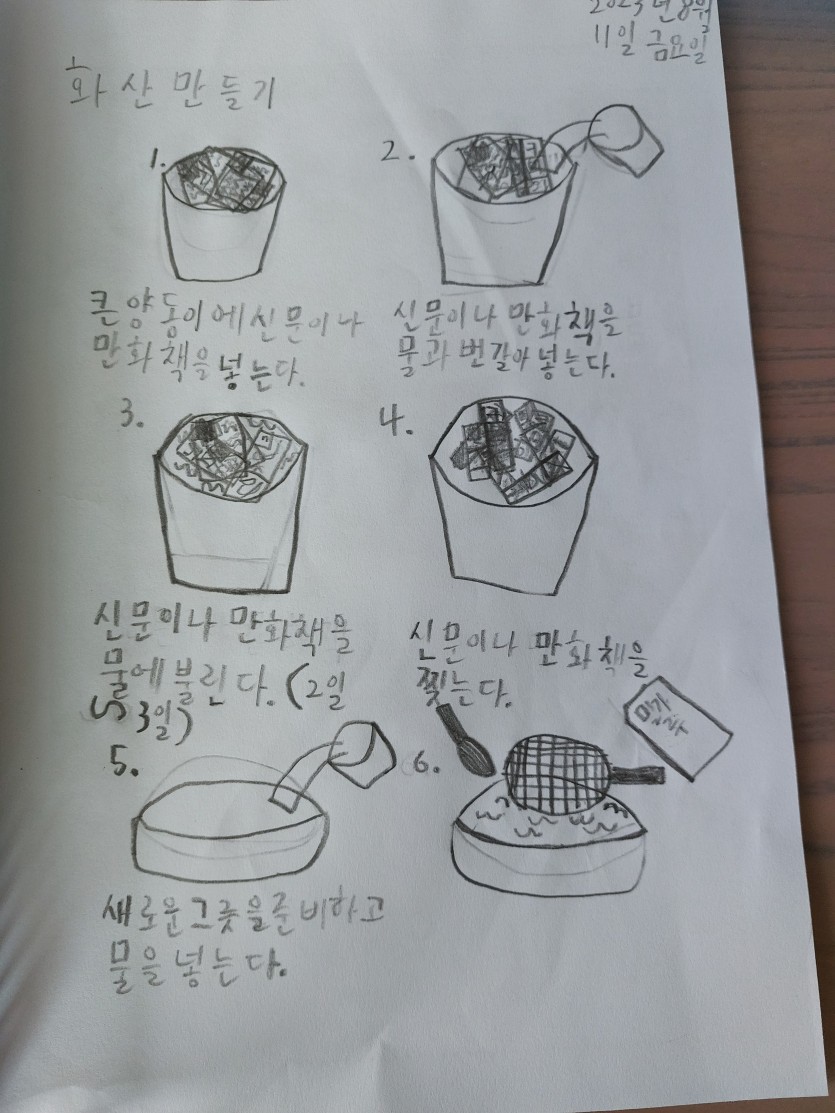 2023년 8월
11일 금요일
화산 만들기
1.
2.
큰 양동이에 신문이나
만화책을 넣는다.
신문이나 만화책을
물과 번갈아 넣는다.
3.
4.
신문이나 만화책을
물에 불린다. (2일
~ 3일)
신문이나 만화책을
찢는다.
5.
6.
밀가
루
새로운 그릇을 준비하고
물을 넣는다.